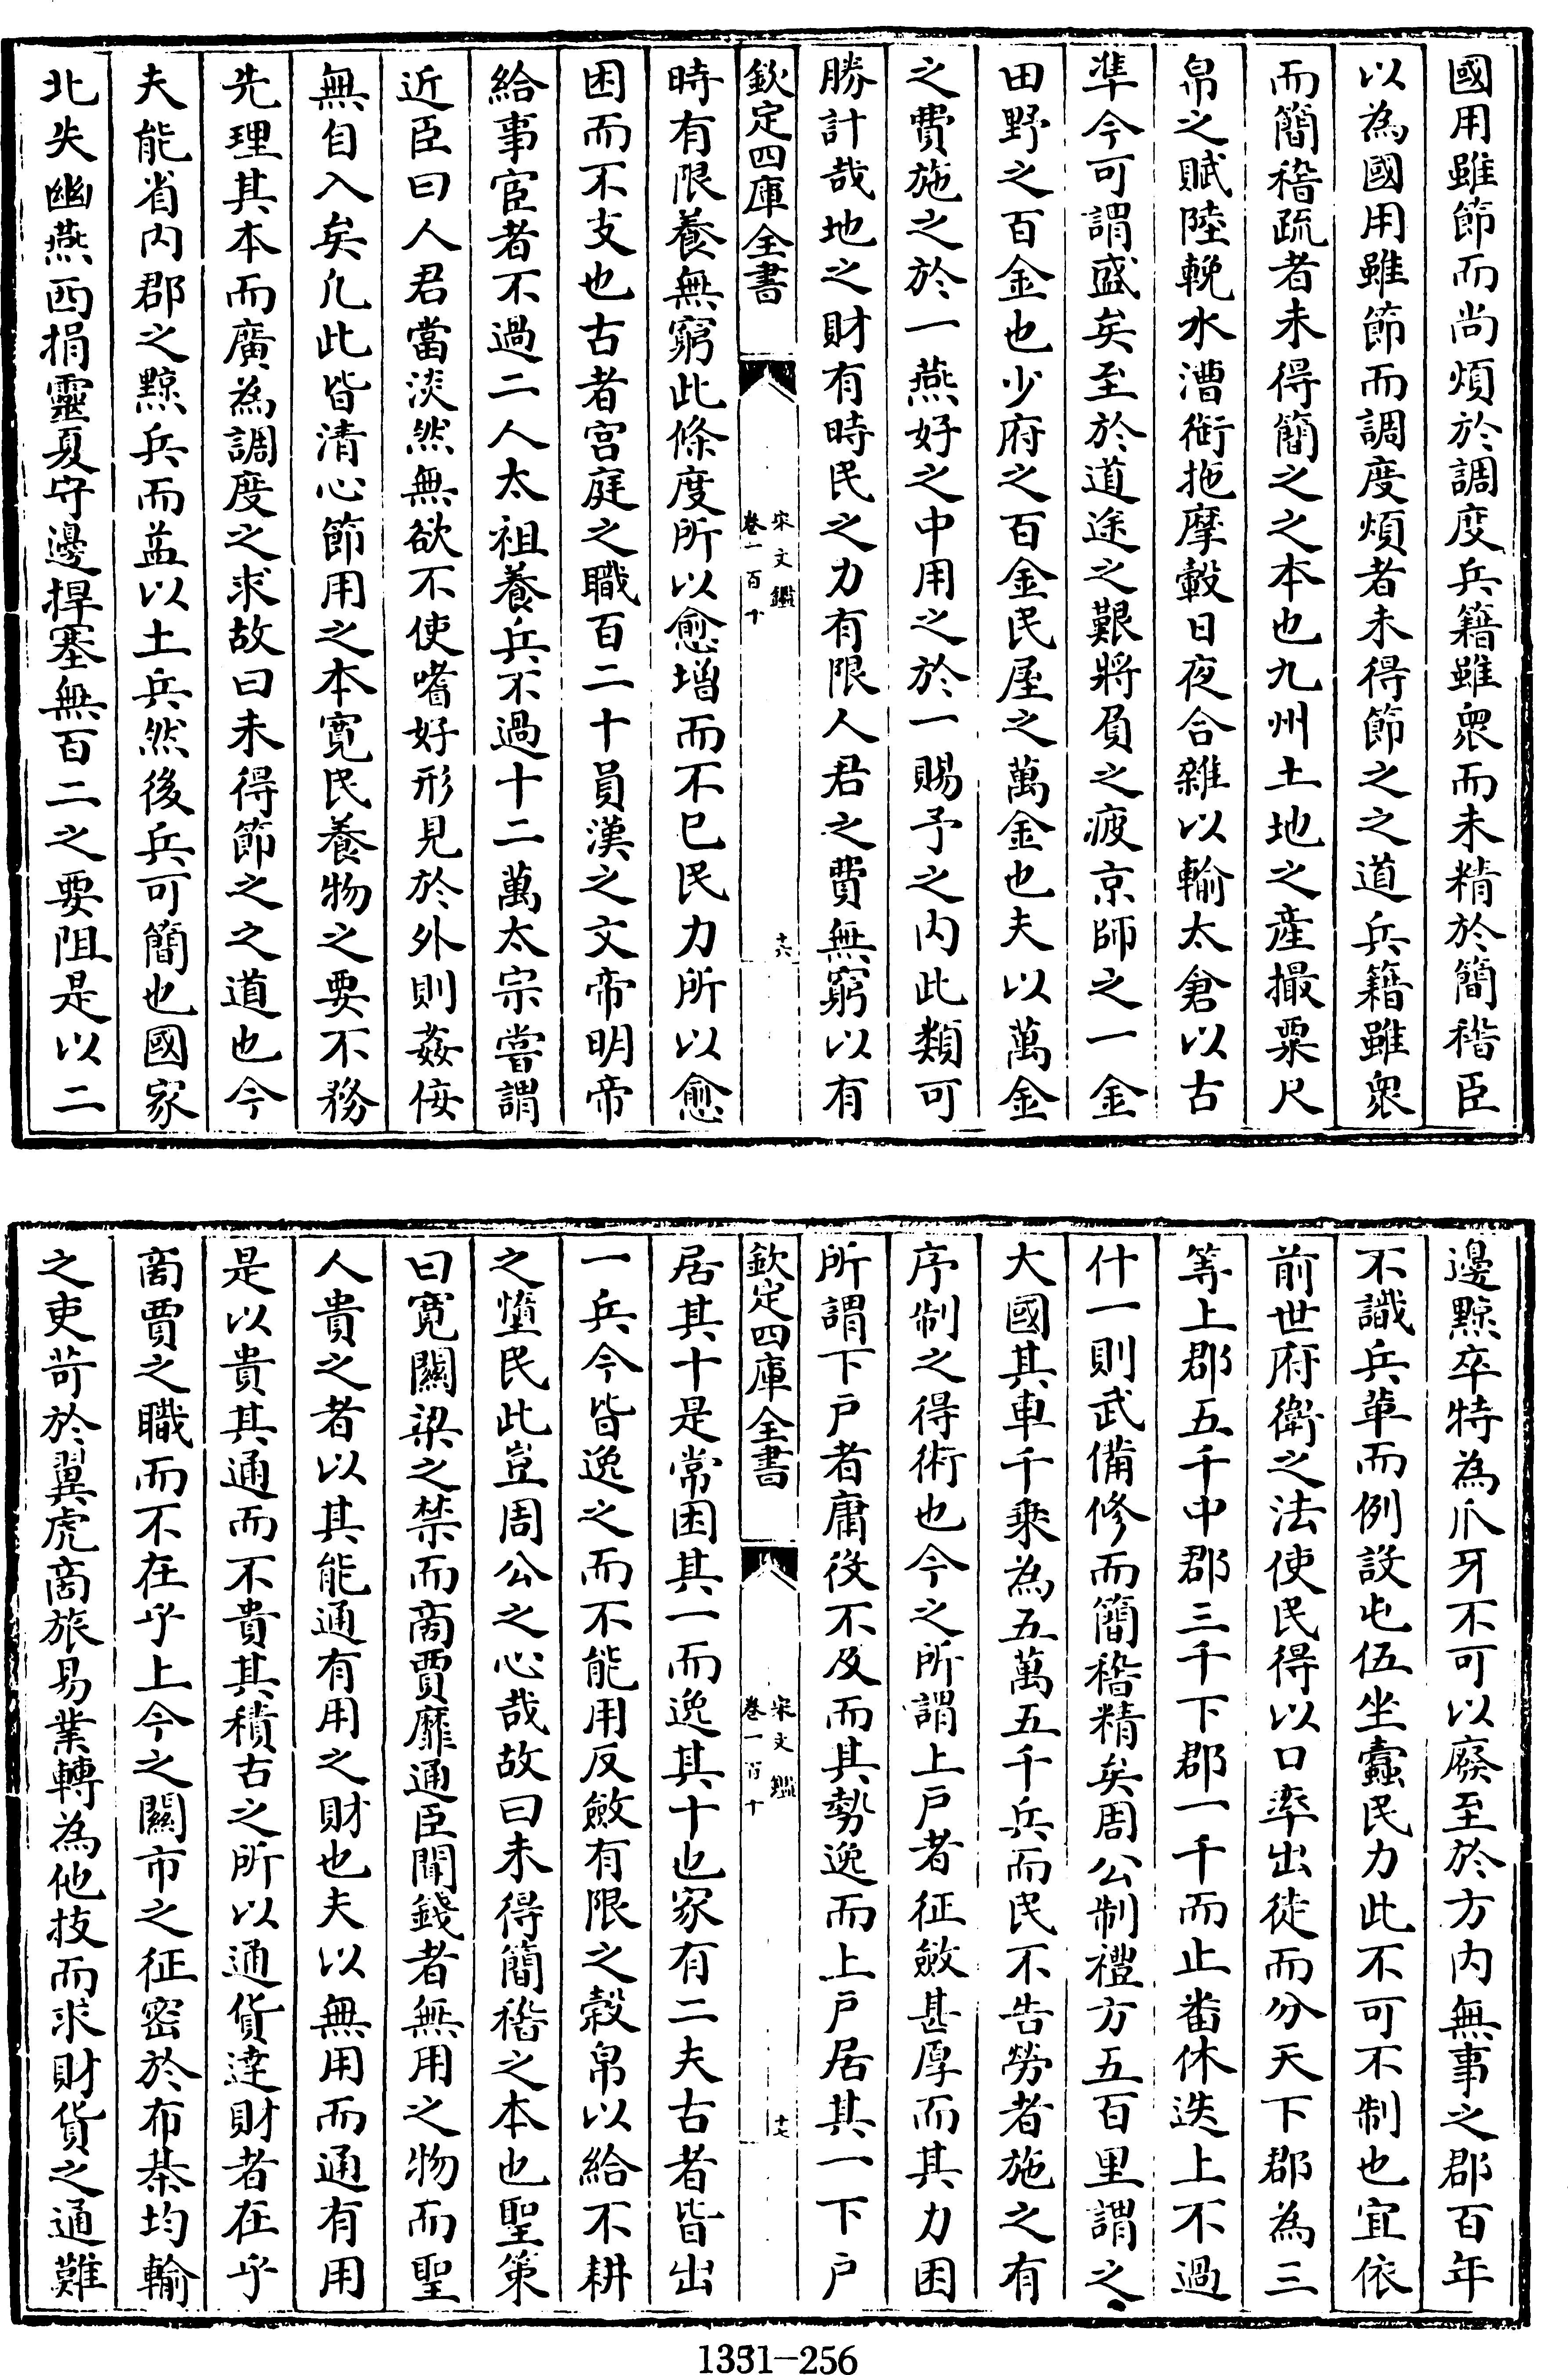 國用雖節而尚煩於調度兵籍雖衆而未精於簡稽臣
以為國用雖節而調度煩者未得節之之道兵籍雖衆
而簡稽疏者未得簡之之本也九州土地之產撮粟尺
帛之賦陸輓水漕銜拖摩轂日夜合雜以輸太倉以古
準今可謂盛矣至於道途之艱將負之疲京師之一金
田野之百金也少府之百金民屋之萬金也夫以萬金
之費施之於一燕好之中用之於一賜予之内此類可
勝計哉地之財有時民之力有限人君之費無窮以有
欽定四庫全書
宋文鑑
卷一百十
十六
時有限養無窮此條度所以愈增而不已民力所以愈
困而不支也古者宫庭之職百二十員漢之文帝明帝
給事宦者不過二人太祖養兵不過十二萬太宗嘗謂
近臣曰人君當淡然無欲不使嗜好形見於外則姦佞
無自入矣凡此皆清心節用之本寛民養物之要不務
先理其本而廣為調度之求故曰未得節之之道也今
夫能省内郡之黥兵而益以土兵然後兵可簡也國家
北失幽燕西捐靈夏守邊捍塞無百二之要阻是以二
邊黥卒特為爪牙不可以廢至於方内無事之郡百年
不識兵革而例設屯伍坐蠹民力此不可不制也宜依
前世府衛之法使民得以口率出徒而分天下郡為三
等上郡五千中郡三千下郡一千而止畨休迭上不過
什一則武備修而簡稽精矣周公制禮方五百里謂之
大國其車千乗為五萬五千兵而民不告勞者施之有
序制之得術也今之所謂上戸者征斂甚厚而其力困
所謂下戸者庸役不及而其勢逸而上戸居其一下戸
欽定四庫全書
宋文鑑
卷一百十
十七
居其十是常困其一而逸其十也家有二夫古者皆出
一兵今皆逸之而不能用反斂有限之穀帛以給不耕
之墮民此豈周公之心哉故曰未得簡稽之本也聖策
曰寛關梁之禁而商賈靡通臣聞錢者無用之物而聖
人貴之者以其能通有用之財也夫以無用而通有用
是以貴其通而不貴其積古之所以通貨達財者在乎
商賈之職而不在乎上今之關市之征密於布棊均輸
之吏苛於翼虎商旅易業轉為他技而求財貨之通難
1351-256